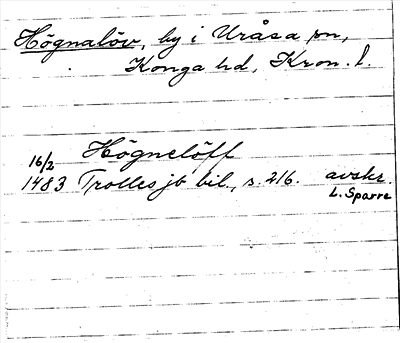 Högnalöv, by i Uråsa sn,
Konga hd, Kron. l.
Högnelöff
16/2
1483 Trolles jb, bil., s. 216. avskr.
L. Sparre